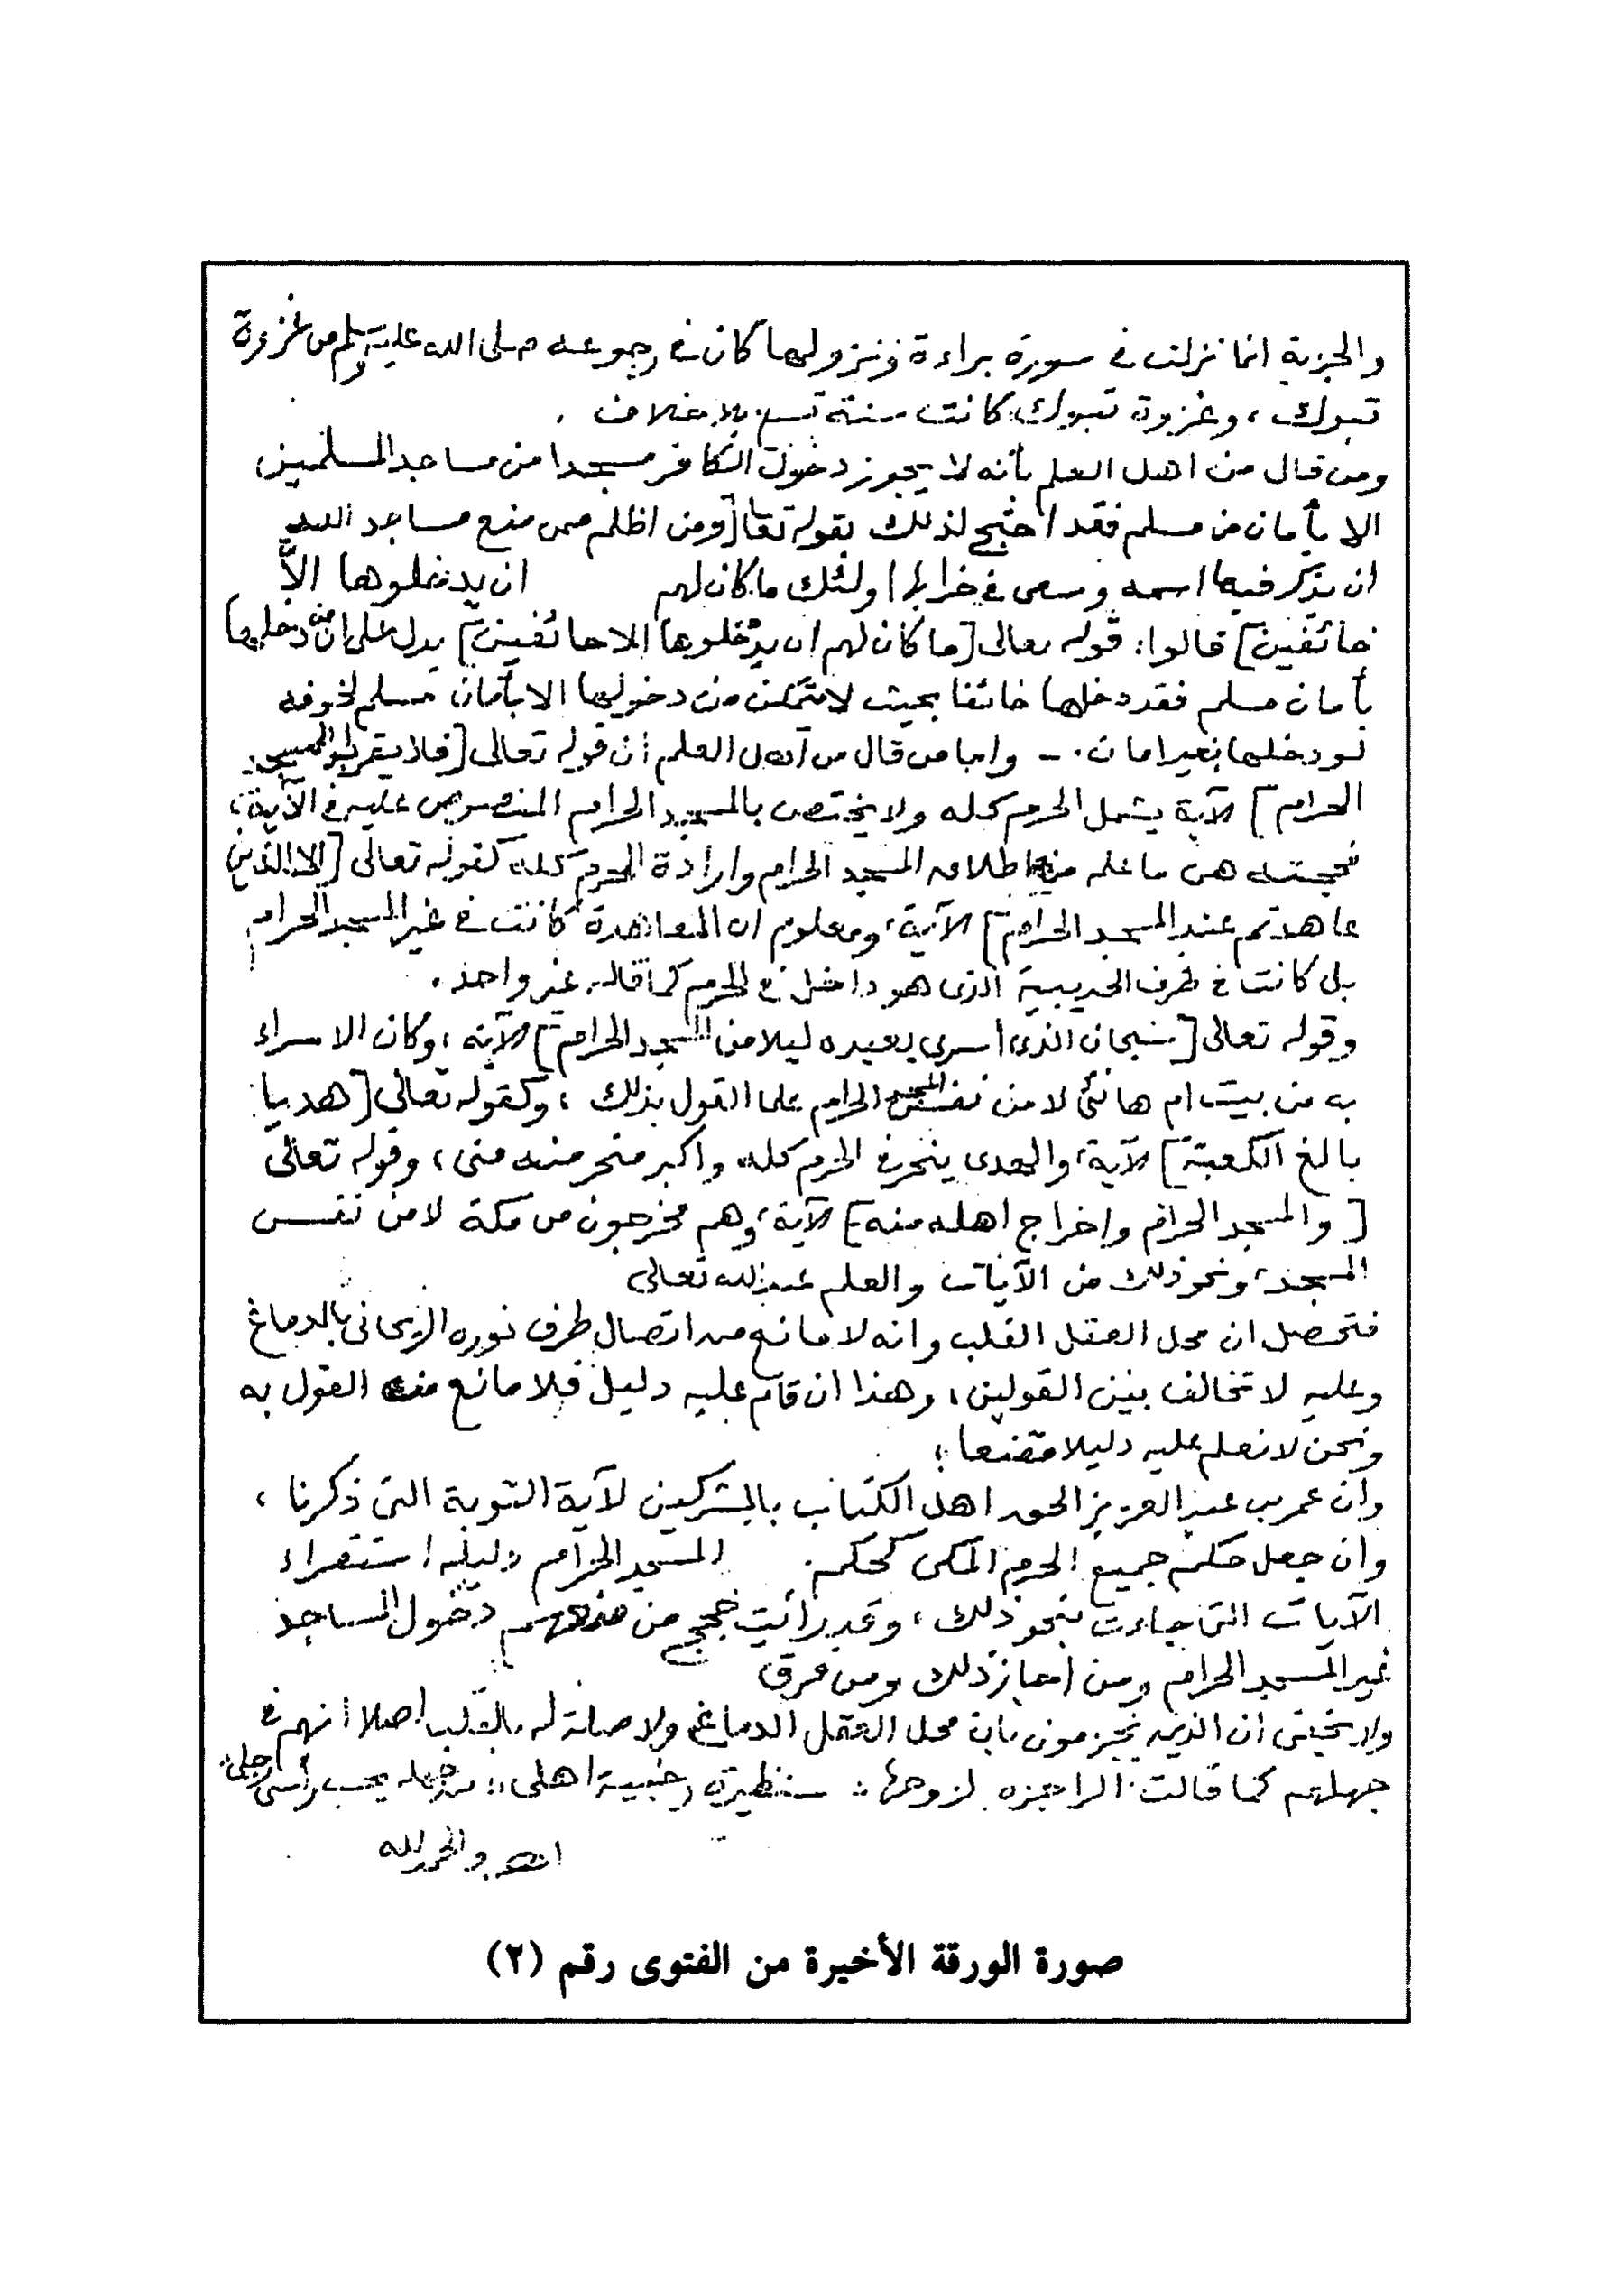 والجزية انما نزلت في سورة براءة ونزولها كان في رجوعه صلى الله عليه وسلم من غزوة
تبوك ، وغزوة تبوك كانت سنة تسع بلا خلاف .
ومن قال من اهل العلم بأنه لا يجوز دخول الكافر مسجدا من مساجد المسلمين
الا بأمان من مسلم فقد احتج لذلك بقوله تعالى [ومن اظلم ممن منع مساجد الله
ان يذكر فيها اسمه وسعى في خرابها اولئك ما كان لهم ان يدخلوها الاَّ
خائفين] قالوا: قوله تعالى [ما كان لهم ان يدخلوها الا خائفين] يدل على ان من دخلها
بأمان مسلم فقد دخلها خائفا بحيث لا يتمكن من دخولها الا بأمان مسلم لخوفه
لو دخلها بغير امان . – واما من قال من أهل العلم أن قوله تعالى [فلا يقربوا المسجد
الحرام] الآية يشمل الحرم كله ولا يختص بالمسجد الحرام المنصوص عليه في الآية ،
فحجته هي ما علم من اطلاق المسجد الحرام وارادة الحرم كله كقوله تعالى [إلا الذين
عاهدتم عند المسجد الحرام] الآية ، ومعلوم ان المعاهدة كانت في غير المسجد الحرام
بل كانت في طرف الحديبية الذي هو داخل في الحرم كما قاله غير واحد .
وقوله تعالى [سبحان الذي أسرى بعبده ليلا من المسجد الحرام] الآية ، وكان الاسراء
به من بيت ام هانئ لا من نفس المسجد الحرام على القول بذلك ، وكقوله تعالى [هديا
بالغ الكعبة] الآية ، والهدى ينحر في الحرم كله واكبر منحر منه منى ، وقوله تعالى
[والمسجد الحرام وإخراج اهله منه] الآية ، وهم مخرجون من مكة لا من نفس
المسجد ، ونحو ذلك من الآيات والعلم عند الله تعالى
فتحصل ان محل العقل القلب وانه لا مانع من اتصال طرف نوره الريحانى بالدماغ
وعليه لا تخالف بين القولين ، وهذا ان قام عليه دليل فلا مانع من القول به
ونحن لا نعلم عليه دليلا مقنعا ؛
وان عمر بن عبد العزيز الحق اهل الكتاب بالمشركين لآية التوبة التي ذكرنا ،
وان جعل حكم جميع الحرم المكى كحكم المسجد الحرام دليله استقراء
الآيات التي جاءت بنحو ذلك ، وقد رأيت حجج من منعهم دخول المساجد
غير المسجد الحرام ومن اجاز ذلك ومن فرق
ولا يخفى ان الذين يجزمون بان محل العقل الدماغ ولا صلة له بالقلب اصلا انهم في
جهلهم كما قالت الراجزة لزوجها : شنظيرة زوجنيه اهلى :: من جهله يحسب رأسي رجلي
انتهى والحمد لله
صورة الورقة الأخيرة من الفتوى رقم (٢)